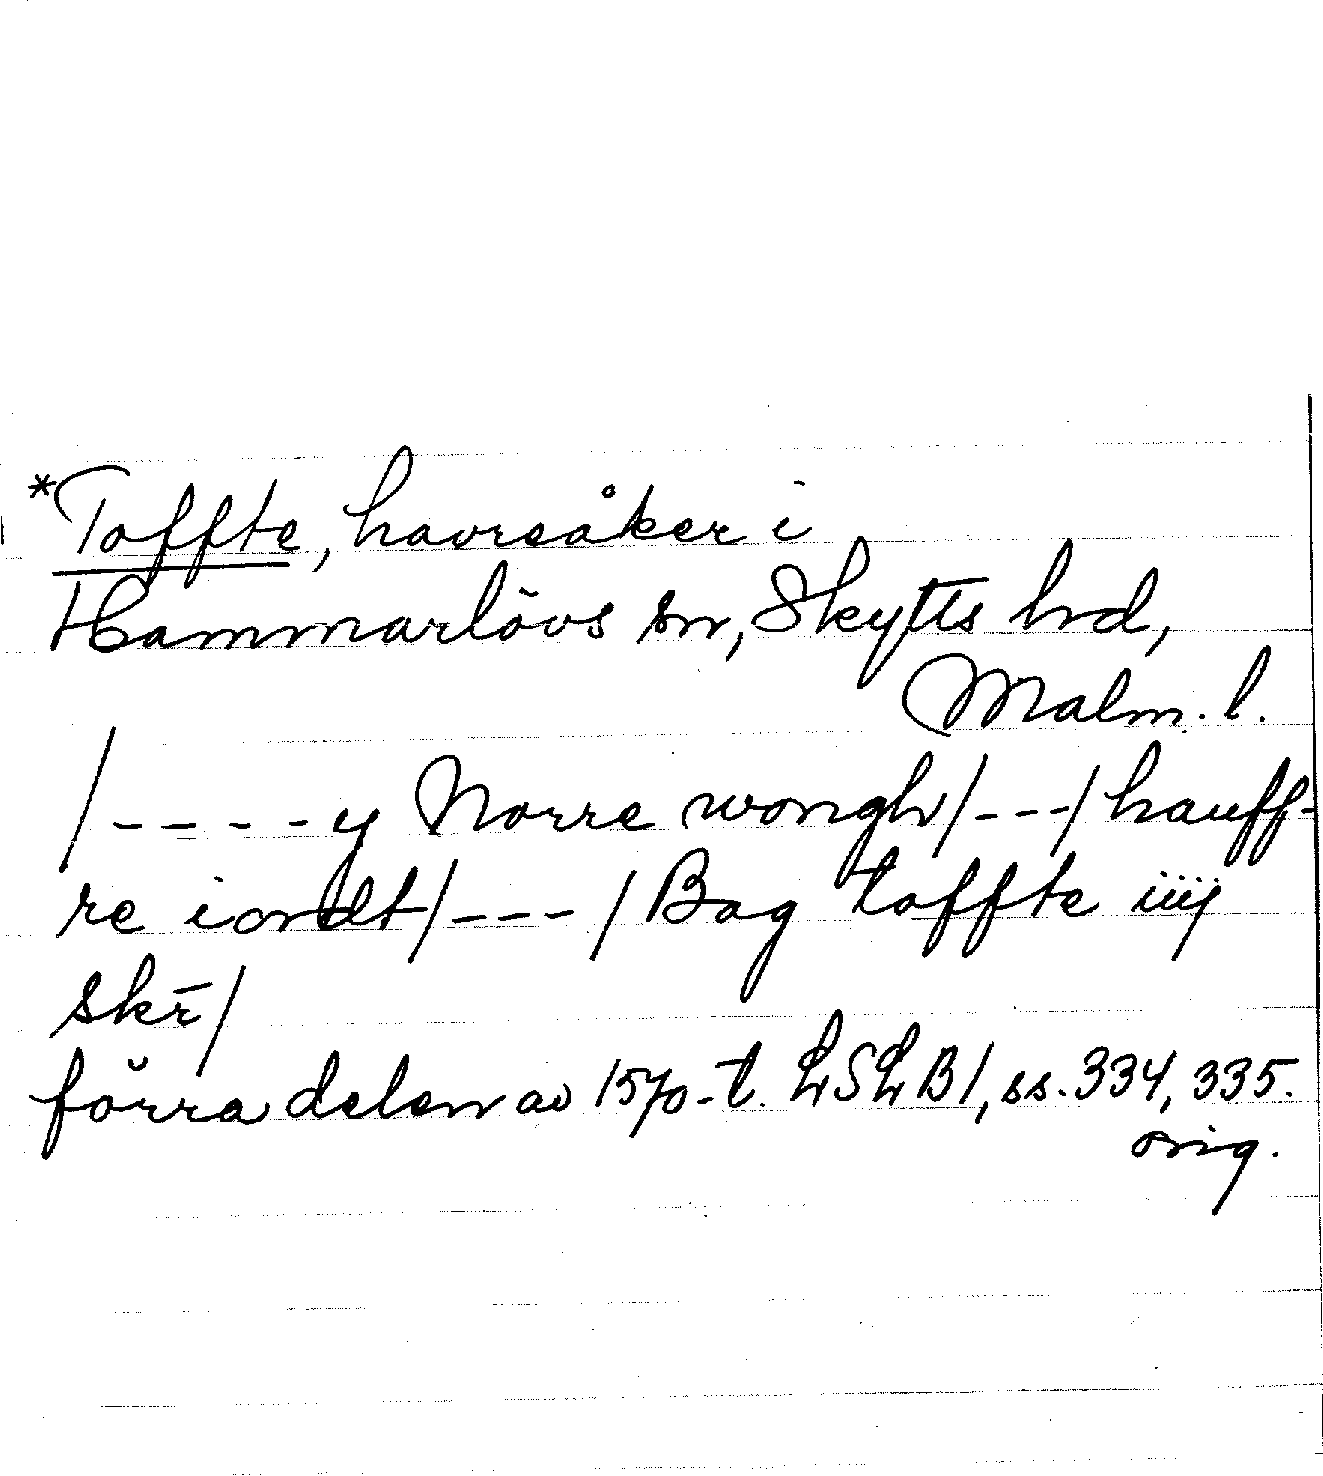 *Toffte, havreåker i
Hammarlövs sn, Skytts hd,
Malm. l.
/----y Norre wongh/---/hauff-
re iordt/---/Bag toffte iiij
skr̄/
förra delen av 1570-t. LSLB1, ss. 334, 335.
orig.